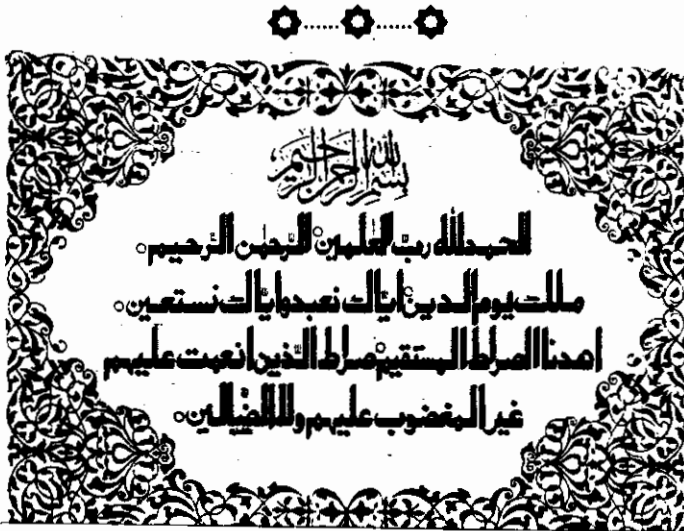 بسم الله الرحمن الرحيم
الحمدلله رب العلمين ○ الرحمن الرحيم ○
ملك يوم الدين ○ اياك نعبد واياك نستعين ○
اهدنا الصراط المستقيم ○ صراط الذين انعمت عليهم
غير المغضوب عليهم ولا الضالين ○